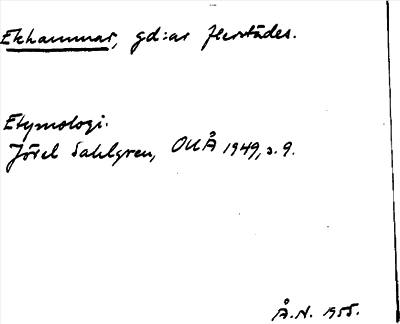 Ekhammar, gd:ar flerstädes.
Etymologi.
Jöran Sahlgren, OUÅ 1949, s. 9.
Å.N. 1955.